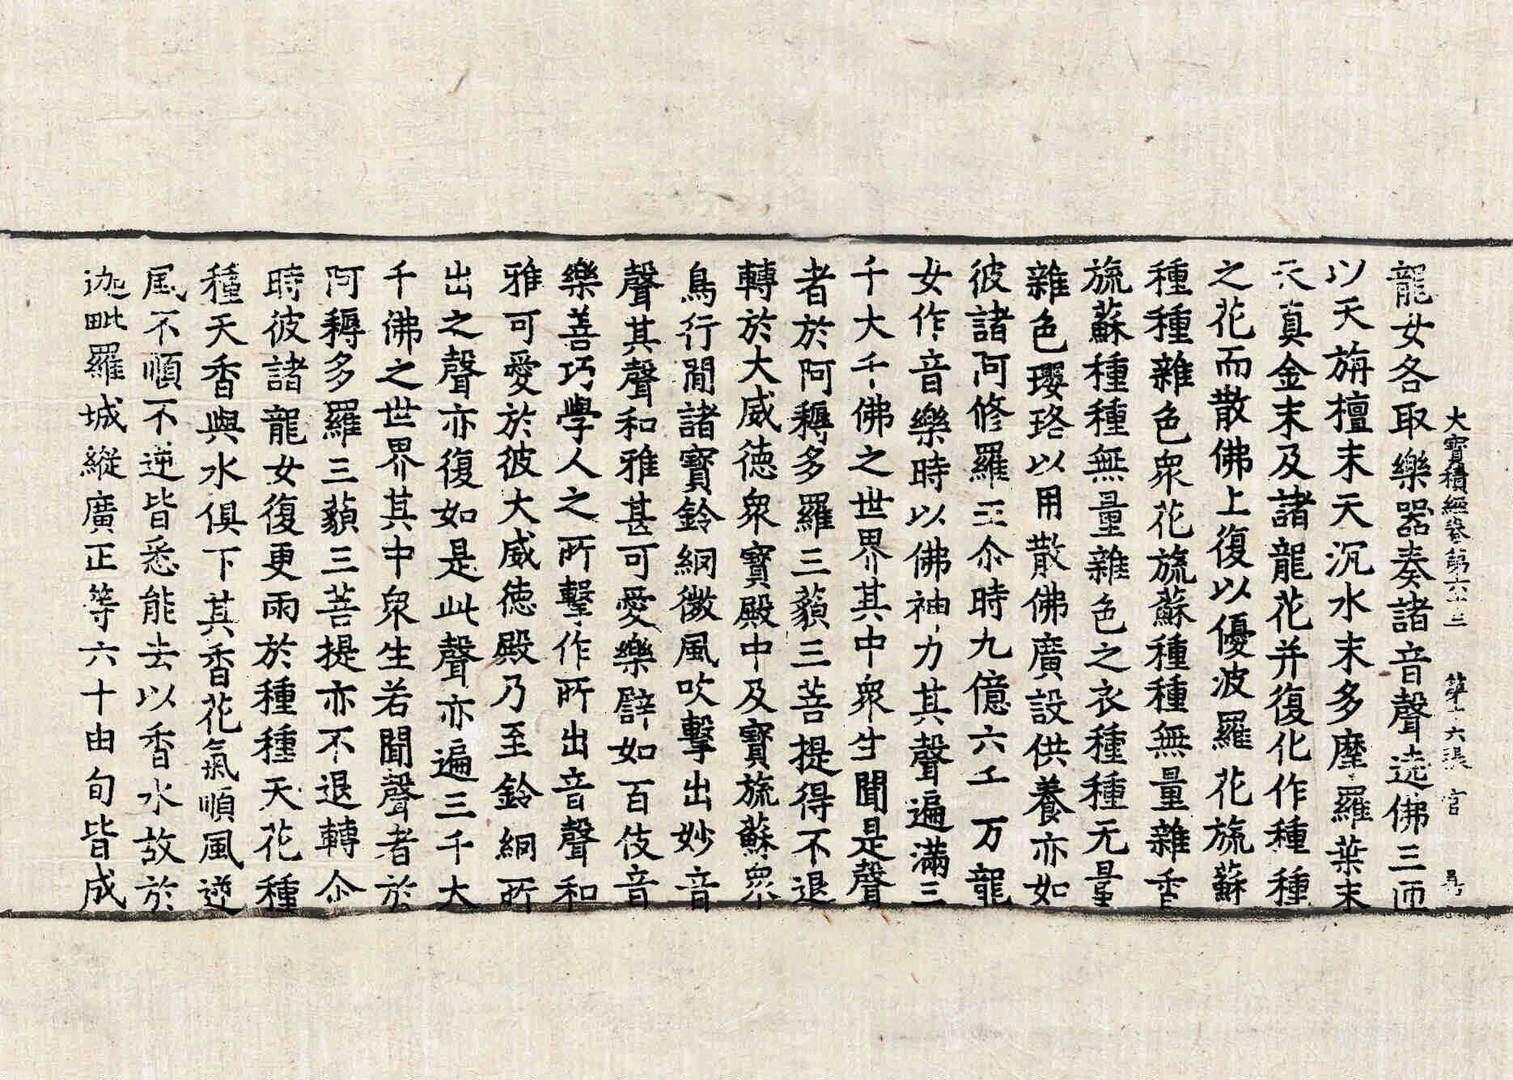 大寶積經卷第六十三 第十六張 官
龍女各取樂器奏諸音聲遶佛三匝
以天旃檀末天沉水末多摩羅葉末
天真金末及諸龍花并復化作種種
之花而散佛上復以優波羅花旒蘇
種種雜色衆花旒蘇種種無量雜香
旒蘇種種無量雜色之衣種種无量
雜色瓔珞以用散佛廣設供養亦如
彼諸阿修羅王尒時九億六千万龍
女作音樂時以佛神力其聲遍滿三
千大千佛之世界其中衆生聞是聲
者於阿耨多羅三藐三菩提得不退
轉於大威徳衆寶殿中及寶旒蘇衆
鳥行閒諸寶鈴網微風吹擊出妙音
聲其聲和雅甚可愛樂譬如百伎音
樂善巧學人之所擊作所出音聲和
雅可愛於彼大威徳殿乃至鈴網所
出之聲亦復如是此聲亦遍三千大
千佛之世界其中衆生若聞聲者於
阿耨多羅三藐三菩提亦不退轉尒
時彼諸龍女復更雨於種種天花種
種天香與水俱下其香花氣順風逆
風不順不逆皆悉能去以香水故於
迦毗羅城縱廣正等六十由旬皆成